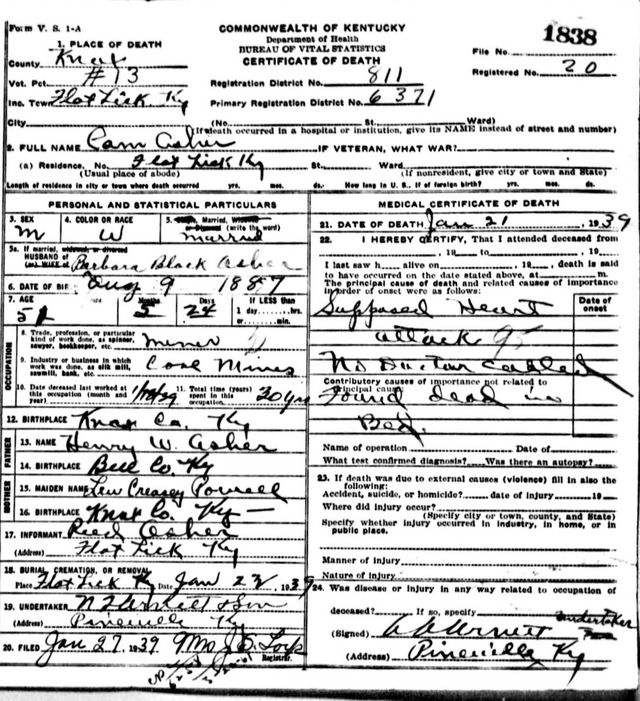 Form V. S. 1-A
COMMONWEALTH OF KENTUCKY
Department of Health
BUREAU OF VITAL STATISTICS
CERTIFICATE OF DEATH
1838
File No.
Registered No. 20
1. PLACE OF DEATH
County Knox
Vot. Pct. #13
Inc. Town Flat Lick Ky
Registration District No. 811
Primary Registration District No. 6371
City (No. St. Ward)
(If death occurred in a hospital or institution, give its NAME instead of street and number)
2. FULL NAME Cam Asher IF VETERAN, WHAT WAR?
(a) Residence. No. Flat Lick Ky St. Ward.
(Usual place of abode) (If nonresident, give city or town and State)
Length of residence in city or town where death occurred yrs. mos. ds. How long in U. S., if of foreign birth? yrs. mos. ds.
PERSONAL AND STATISTICAL PARTICULARS
3. SEX M
4. COLOR OR RACE W
5. Single, Married, Widowed or Divorced (write the word) Married
5a. If married, widowed, or divorced
HUSBAND of
(or) WIFE of Barbara Black Asher
6. DATE OF BIRTH Aug 9 1887
7. AGE 51 Months 5 Days 24 If LESS than
1 day hrs.
or min.
OCCUPATION
8. Trade, profession, or particular
kind of work done, as spinner,
sawyer, bookkeeper, etc. Miner
9. Industry or business in which
work was done, as silk mill,
sawmill, bank, etc. Coal Mines
10. Date deceased last worked at
this occupation (month and
year)
11. Total time (years)
spent in this
occupation. 20 yrs
12. BIRTHPLACE Knox Co. Ky
FATHER
13. NAME Henry W. Asher
14. BIRTHPLACE Bell Co. Ky
MOTHER
15. MAIDEN NAME Creasey
16. BIRTHPLACE Knox Co. Ky
17. INFORMANT Reed Asher
(Address) Flat Lick Ky
18. BURIAL, CREMATION, OR REMOVAL
Place Flat Lick Ky Date Jan 22, 1939
19. UNDERTAKER & Son
(Address) Pineville Ky
20. FILED Jan 27, 1939 Mrs J B
Registrar.
MEDICAL CERTIFICATE OF DEATH
21. DATE OF DEATH Jan 21, 1939
22. I HEREBY CERTIFY, That I attended deceased from
, 19 to , 19
I last saw h alive on , 19 , death is said
to have occurred on the date stated above, at m.
The principal cause of death and related causes of importance
in order of onset were as follows: Date of onset
Supposed Heart
attack 95
No Doctor called
Contributory causes of importance not related to
principal cause:
Found dead in
Bed.
Name of operation Date of
What test confirmed diagnosis? Was there an autopsy?
23. If death was due to external causes (violence) fill in also the
following:
Accident, suicide, or homicide? date of injury 19
Where did injury occur?
(Specify city or town, county, and State)
Specify whether injury occurred in industry, in home, or in
public place.
Manner of injury
Nature of injury
24. Was disease or injury in any way related to occupation of
deceased? If so, specify
Undertaker
(Signed)
(Address) Pineville Ky